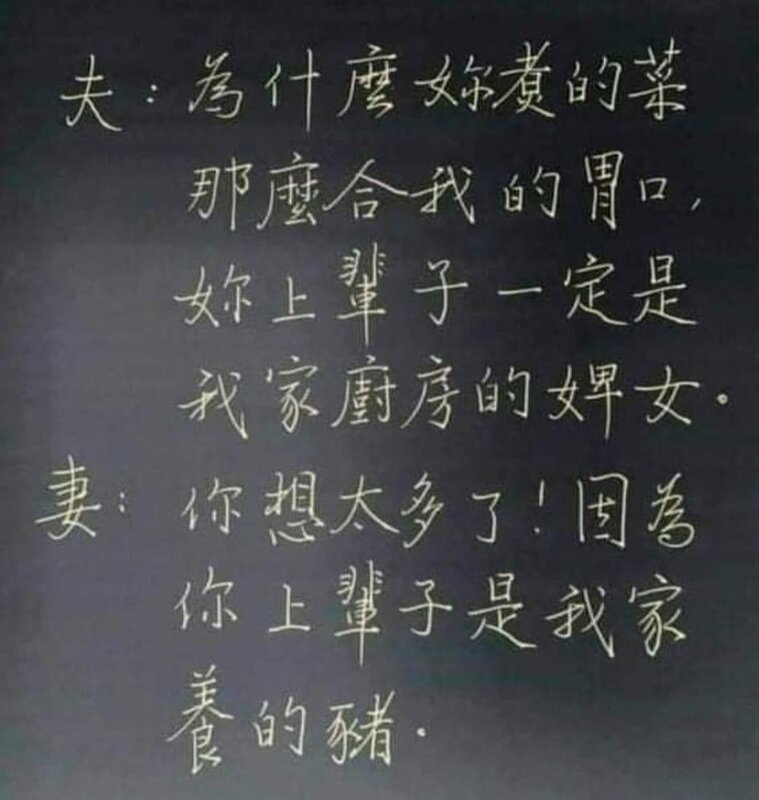 夫：為什麼妳煮的菜
那麼合我的胃口，
妳上輩子一定是
我家廚房的婢女。
妻：你想太多了！因為
你上輩子是我家
養的豬.